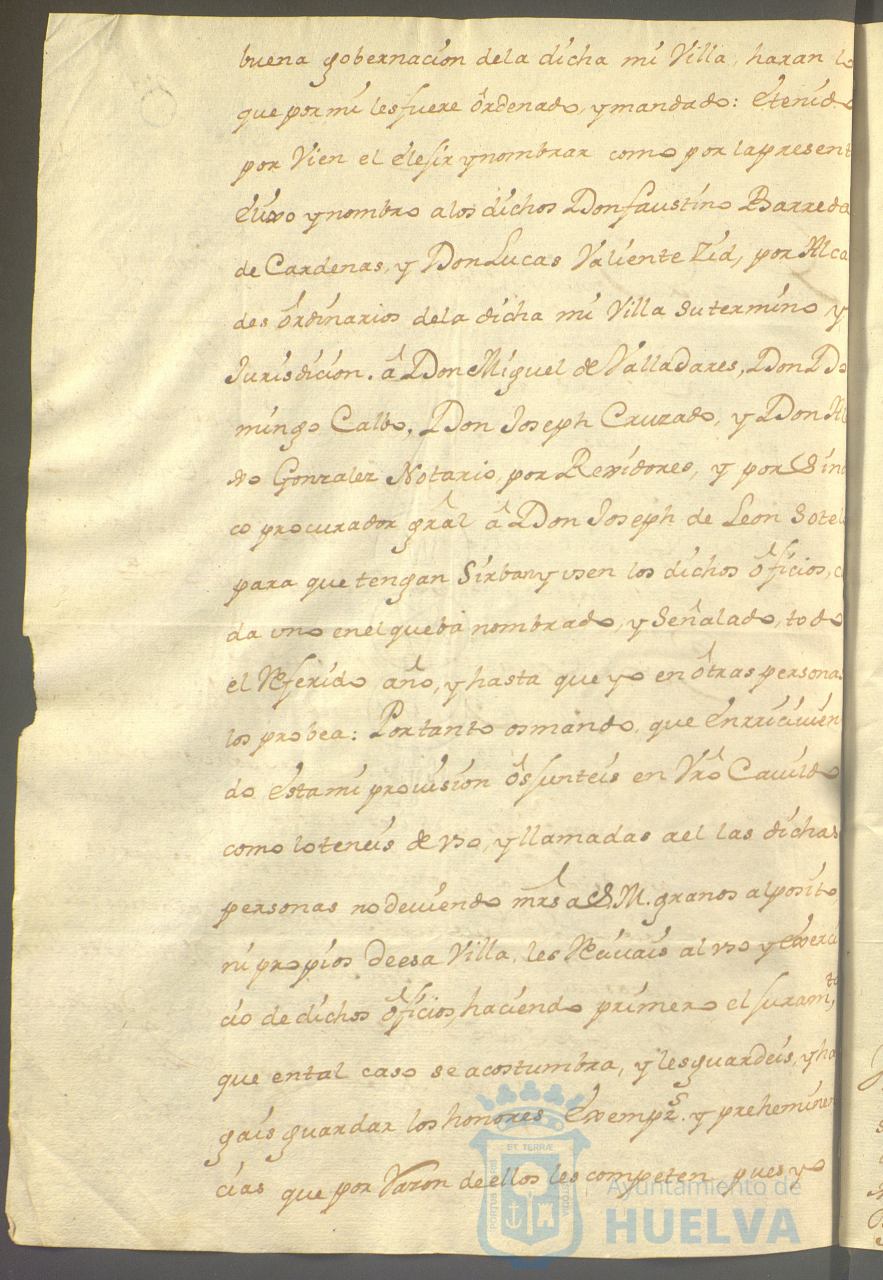 buena gobernacion dela dicha mi Villa, haran lo
que por mi les fuere ôrdenado, y mandado: É tenido
por Vien el elesir y nombrar como por la present
Elixo y nombro a los dichos Don faustino Barreda
de Cardenas, y Don Lucas Valiente Zid, por Alca
des ôrdinarios dela dicha mi Villa su termino y
Jurisdicion. â Don Miguel de Valladares, Don Do
mingo Calbo, Don Joseph Cruzado, y Don
Gonzalez Notario, por Rexidores, y por Sin
co procurador grâl â Don Joseph de Leon Sotel
para que tengan Sirban y vsen los dichos ôficios, c
da vno en el que bâ nombrado, y Señalado, todo
el Referido año, y hasta que yo en ôtras persona
los probea: Por tanto os mando, que en rriciuien
do esta mi prouision ôs junteis en Vrô Cauildo
como lo teneis de vso, y llamadas a el las dichas
personas no deuiendo mrs̃ a S.M. granos al posito
ni propios de esa Villa, les Reciuais al vso y exerci
cio de dichos ôficios, haciendo primero el juramto,
que en tal caso se acostumbra, y les guardeis, y ha
gais guardar los honores Exempzs. y preheminen
cias que por Razon de ellos les competen pues yo
ET TERRÆ
PORTUS MARIS
CUSTODIA
Ayuntamiento de
HUELVA